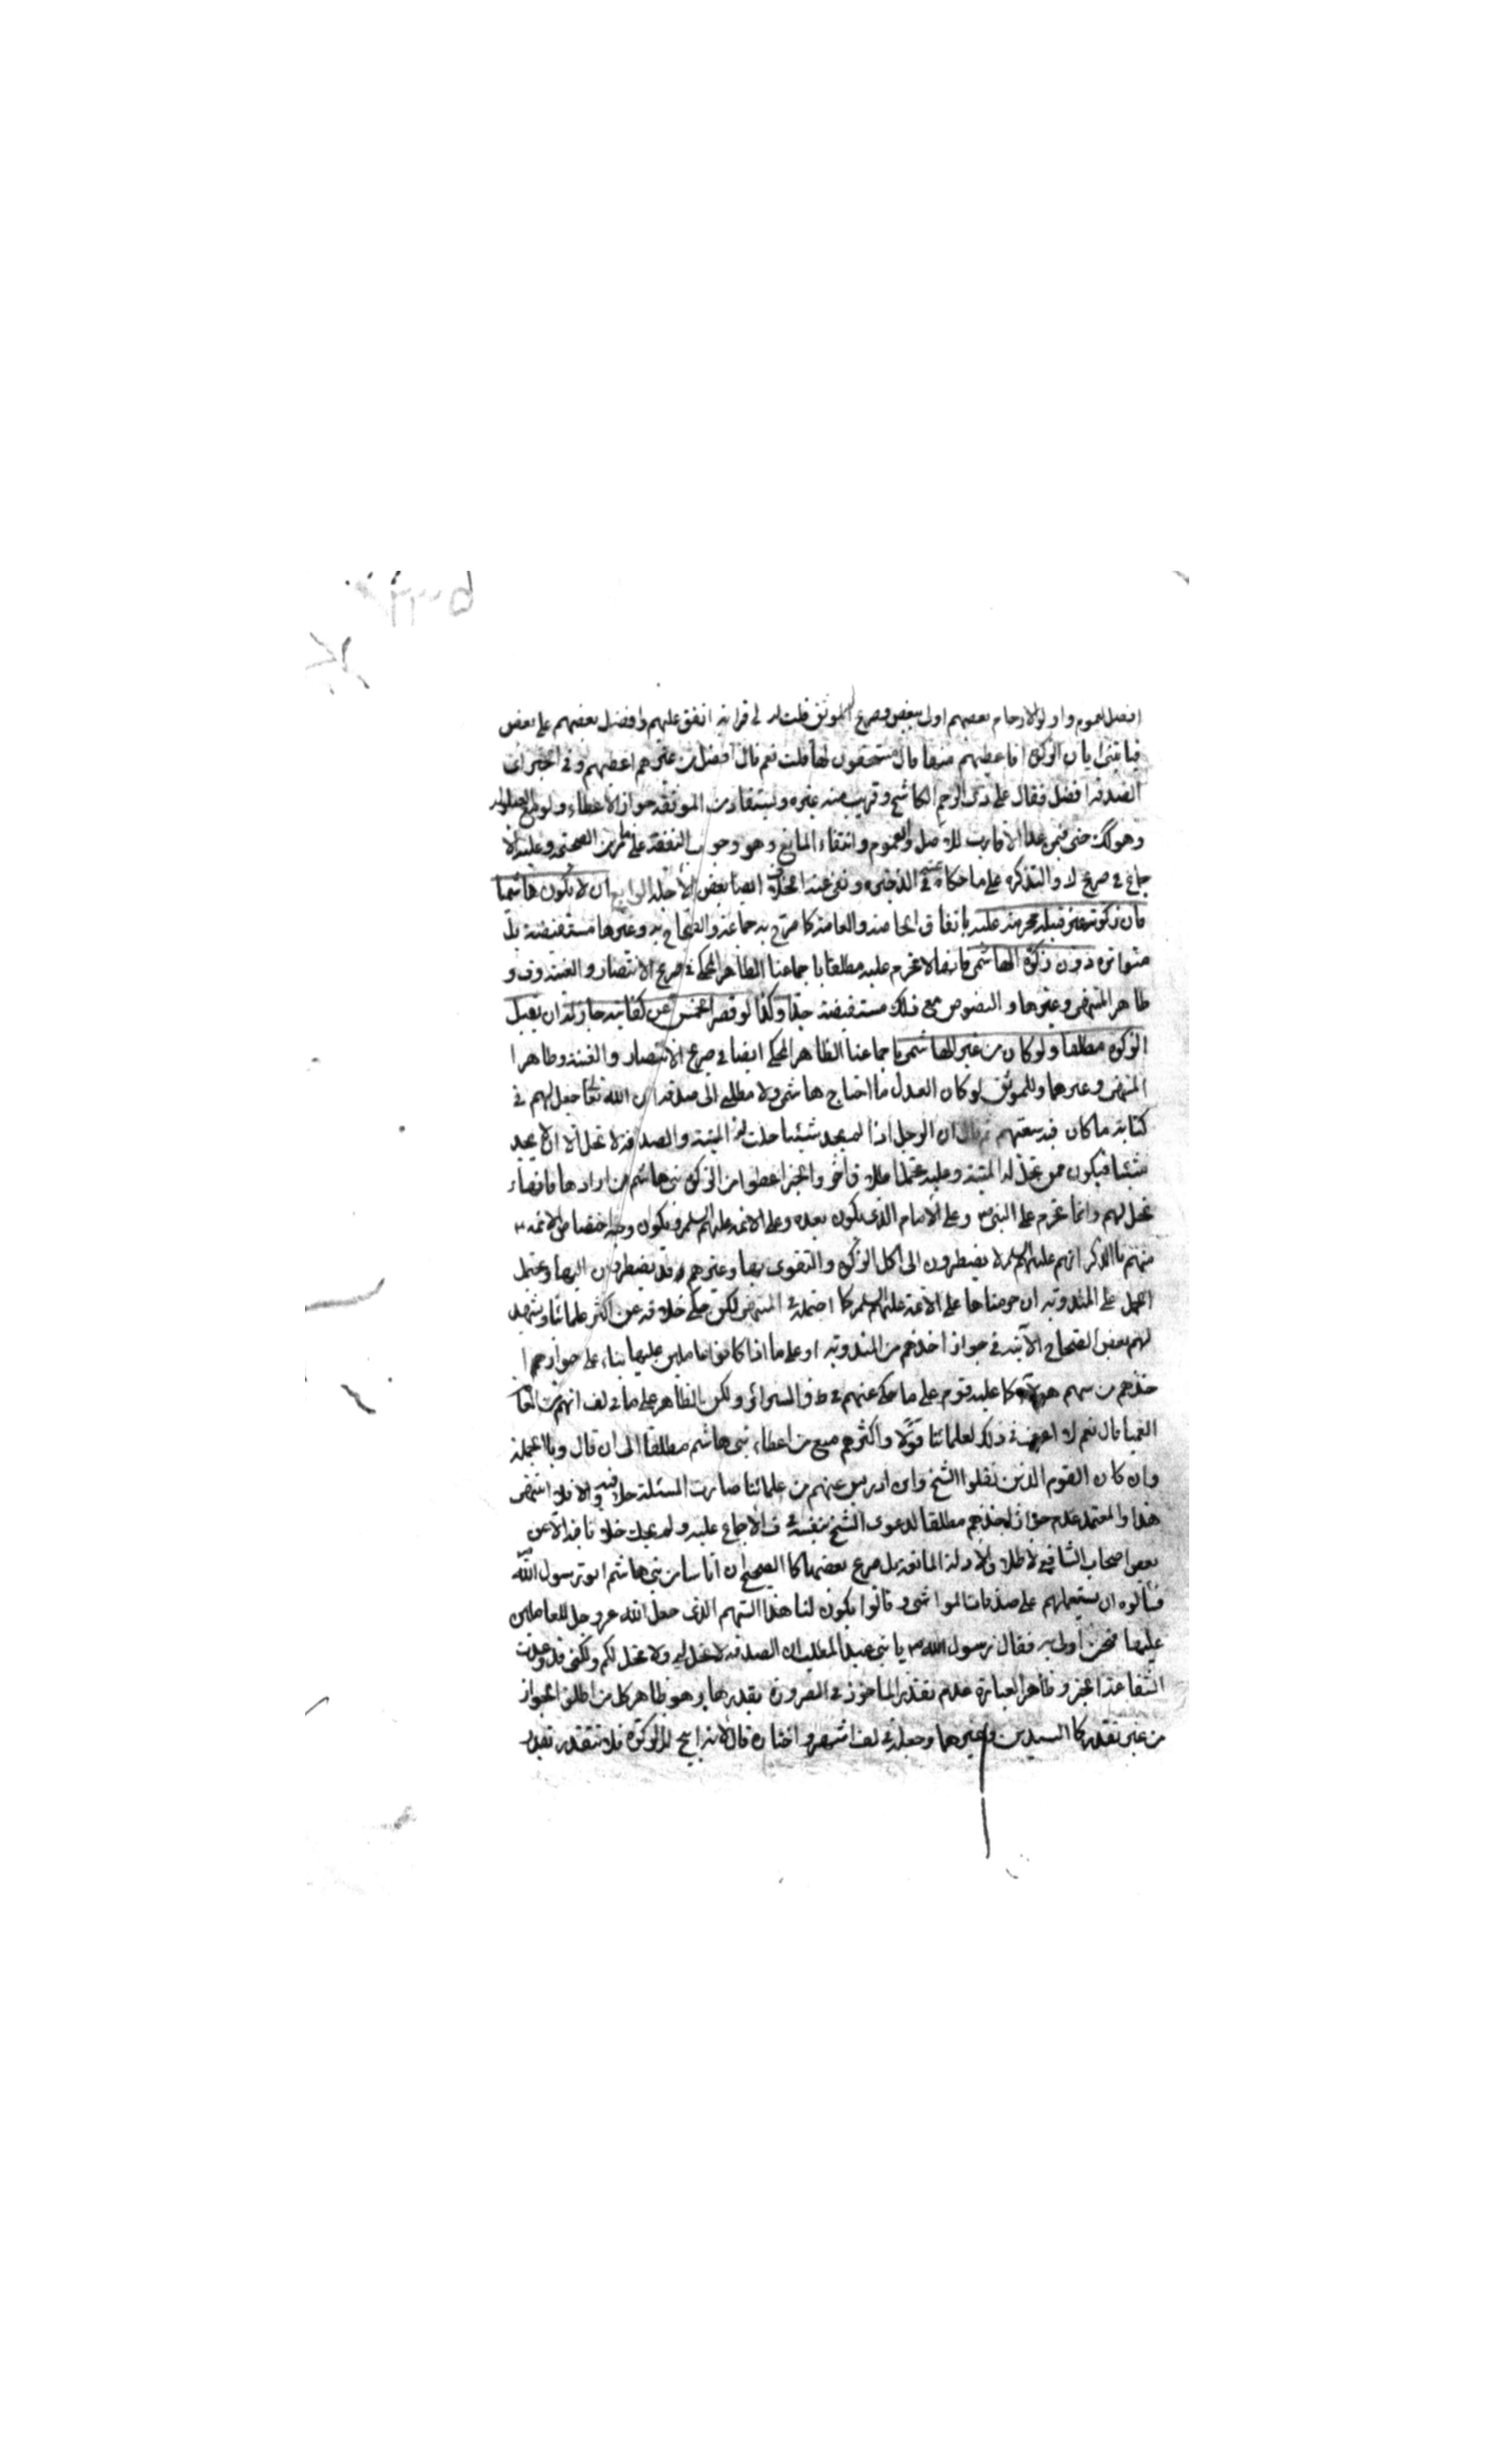 افضل لعموم واولوا الارحام بعضهم اولى ببعض وصريح الموثق قلت له لي قرابة انفق عليهم وافضل بعضهم على بعض
فياتيني ابان الزكوة افاعطيهم منها قال مستحقون لها قلت نعم قال افضل من غيرهم اعطهم وفي الخبر اي
الصدقة افضل فقال على ذي الرحم الكاشح وقريب منه غيره ويستفاد من الموثقة جواز الاعطاء ولو
وهو كك حتى فيمن عدا الاقارب للاصل والعموم وانتفاء المانع وهو وجوب النفقة على من الصحتى وعليه الا
جماع في صريح لا والتذكرة على ما حكاه عنه في الذخيرة ونفى عنه الخلاف ايضا بعض الاجلة الرابع ان لا يكون هاشميا
فان زكوة غير قبيله محرمة عليه باتفاق الخاصة والعامة كما صرح به جماعة والصحاح به وغيرها مستفيضة بل
متواترة دون زكوة الهاشمي فانها لا تحرم عليه مطلقا باجماعنا الظاهر المحكي في صريح الانتصار والغنية وف و
ظاهر المنتهى وغيرها والنصوص مع ذلك مستفيضة جدا وكذا لو قصر الخمس عن كفايته جاز له ان يقبل
الزكوة مطلقا ولو كان من غير الهاشمي باجماعنا الظاهر المحكي ايضا في صريح الانتصار والغنية وظاهرا
المنتهى وغيرهما وللموثق لو كان العدل ما احتاج هاشمي ولا مطلبي الى صدقة ان الله تعا جعل لهم في
كتابه ما كان فيه سعتهم ثم قال ان الرجل اذا لم يجد شيئا حلت له الميتة والصدقة لا تحل الا ان لا يجد
شيئا فيكون ممن تحل له الميتة وعليه يحمل اطلاق اخر والخبر اعطوا من الزكوة بني هاشم من ارادها فانها
تحل لهم وانما تحرم على النبي ص وعلى الامام الذي يكون بعده وعلى الائمة عليهم السلم ويكون وجه اختصاص الائمة ع
منهم بالذكر انهم عليهم السلم لا يضطرون الى اكل الزكوة والتقوى بها وغيرهم قد يضطرون اليها ويحتمل
الحمل على المندوبة ان حرمناها على الائمة عليهم السلم كما احتمله في المنتهى لكن حكي خلافه عن اكثر علمائنا ويشهد
لهم بعض الصحاح الآتية في جواز اخذهم من المندوبة او على ما اذا كانوا عاملين عليها بناء على جوازهم ا
خذهم من سهم هؤلاء كما عليه قوم على ما حكي عنهم في ط والسرائر ولكن الظاهر على ما في لف انهم من
قال نعم لا اعرف في ذلك لعلمائنا قولا واكثرهم منع من اعطاء بني هاشم مطلقا الى ان قال وبالجملة
وان كان القوم الذين نقلوا الشيخ وابن ادريس عنهم من علمائنا صارت المسئلة خلافية والا فلا انتهى
هذا والمعتمد عدم جواز اخذهم مطلقا لدعوى الشيخ بنفسه في ف الاجماع عليه ولم يحك خلافا فيه الا عن
بعض اصحاب الشافعي لاطلاق الادلة المانعة بل صريح بعضها كا الصحيح ان اناسا من بني هاشم اتوا رسول الله ص
فسالوه ان يستعملهم على صدقات المواشي وقالوا يكون لنا هذا السهم الذي جعل الله عز وجل للعاملين
عليها فنحن اولى به فقال رسول الله ص يا بني عبد المطلب ان الصدقة لا تحل لي ولا تحل لكم ولكني قد وعدت
الشفاعة الخبر وظاهر العبارة عدم تقدير الماخوذ في الضرورة بقدرها وهو ظاهر كل من اطلق الجواز
من غير تقدير كا السيدين وغيرهما وجعله في لف اشهر واختاره قال لانه ابيح له الزكوة فلا تتقدر بقدر